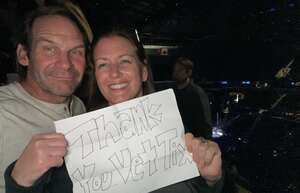 Thank
You VetTix